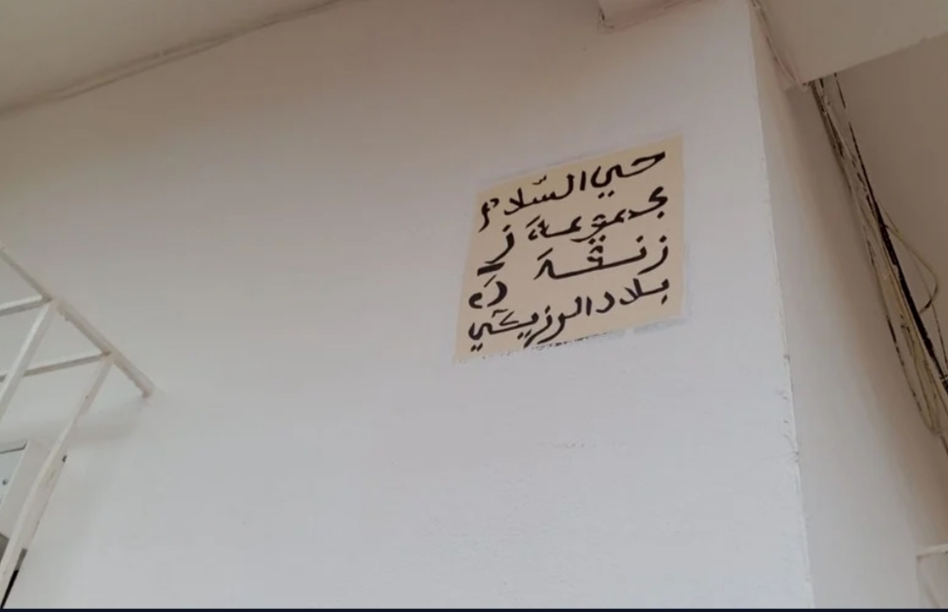 حي السّلام
مجموعة ز
زنقة
بلاد الزيكي